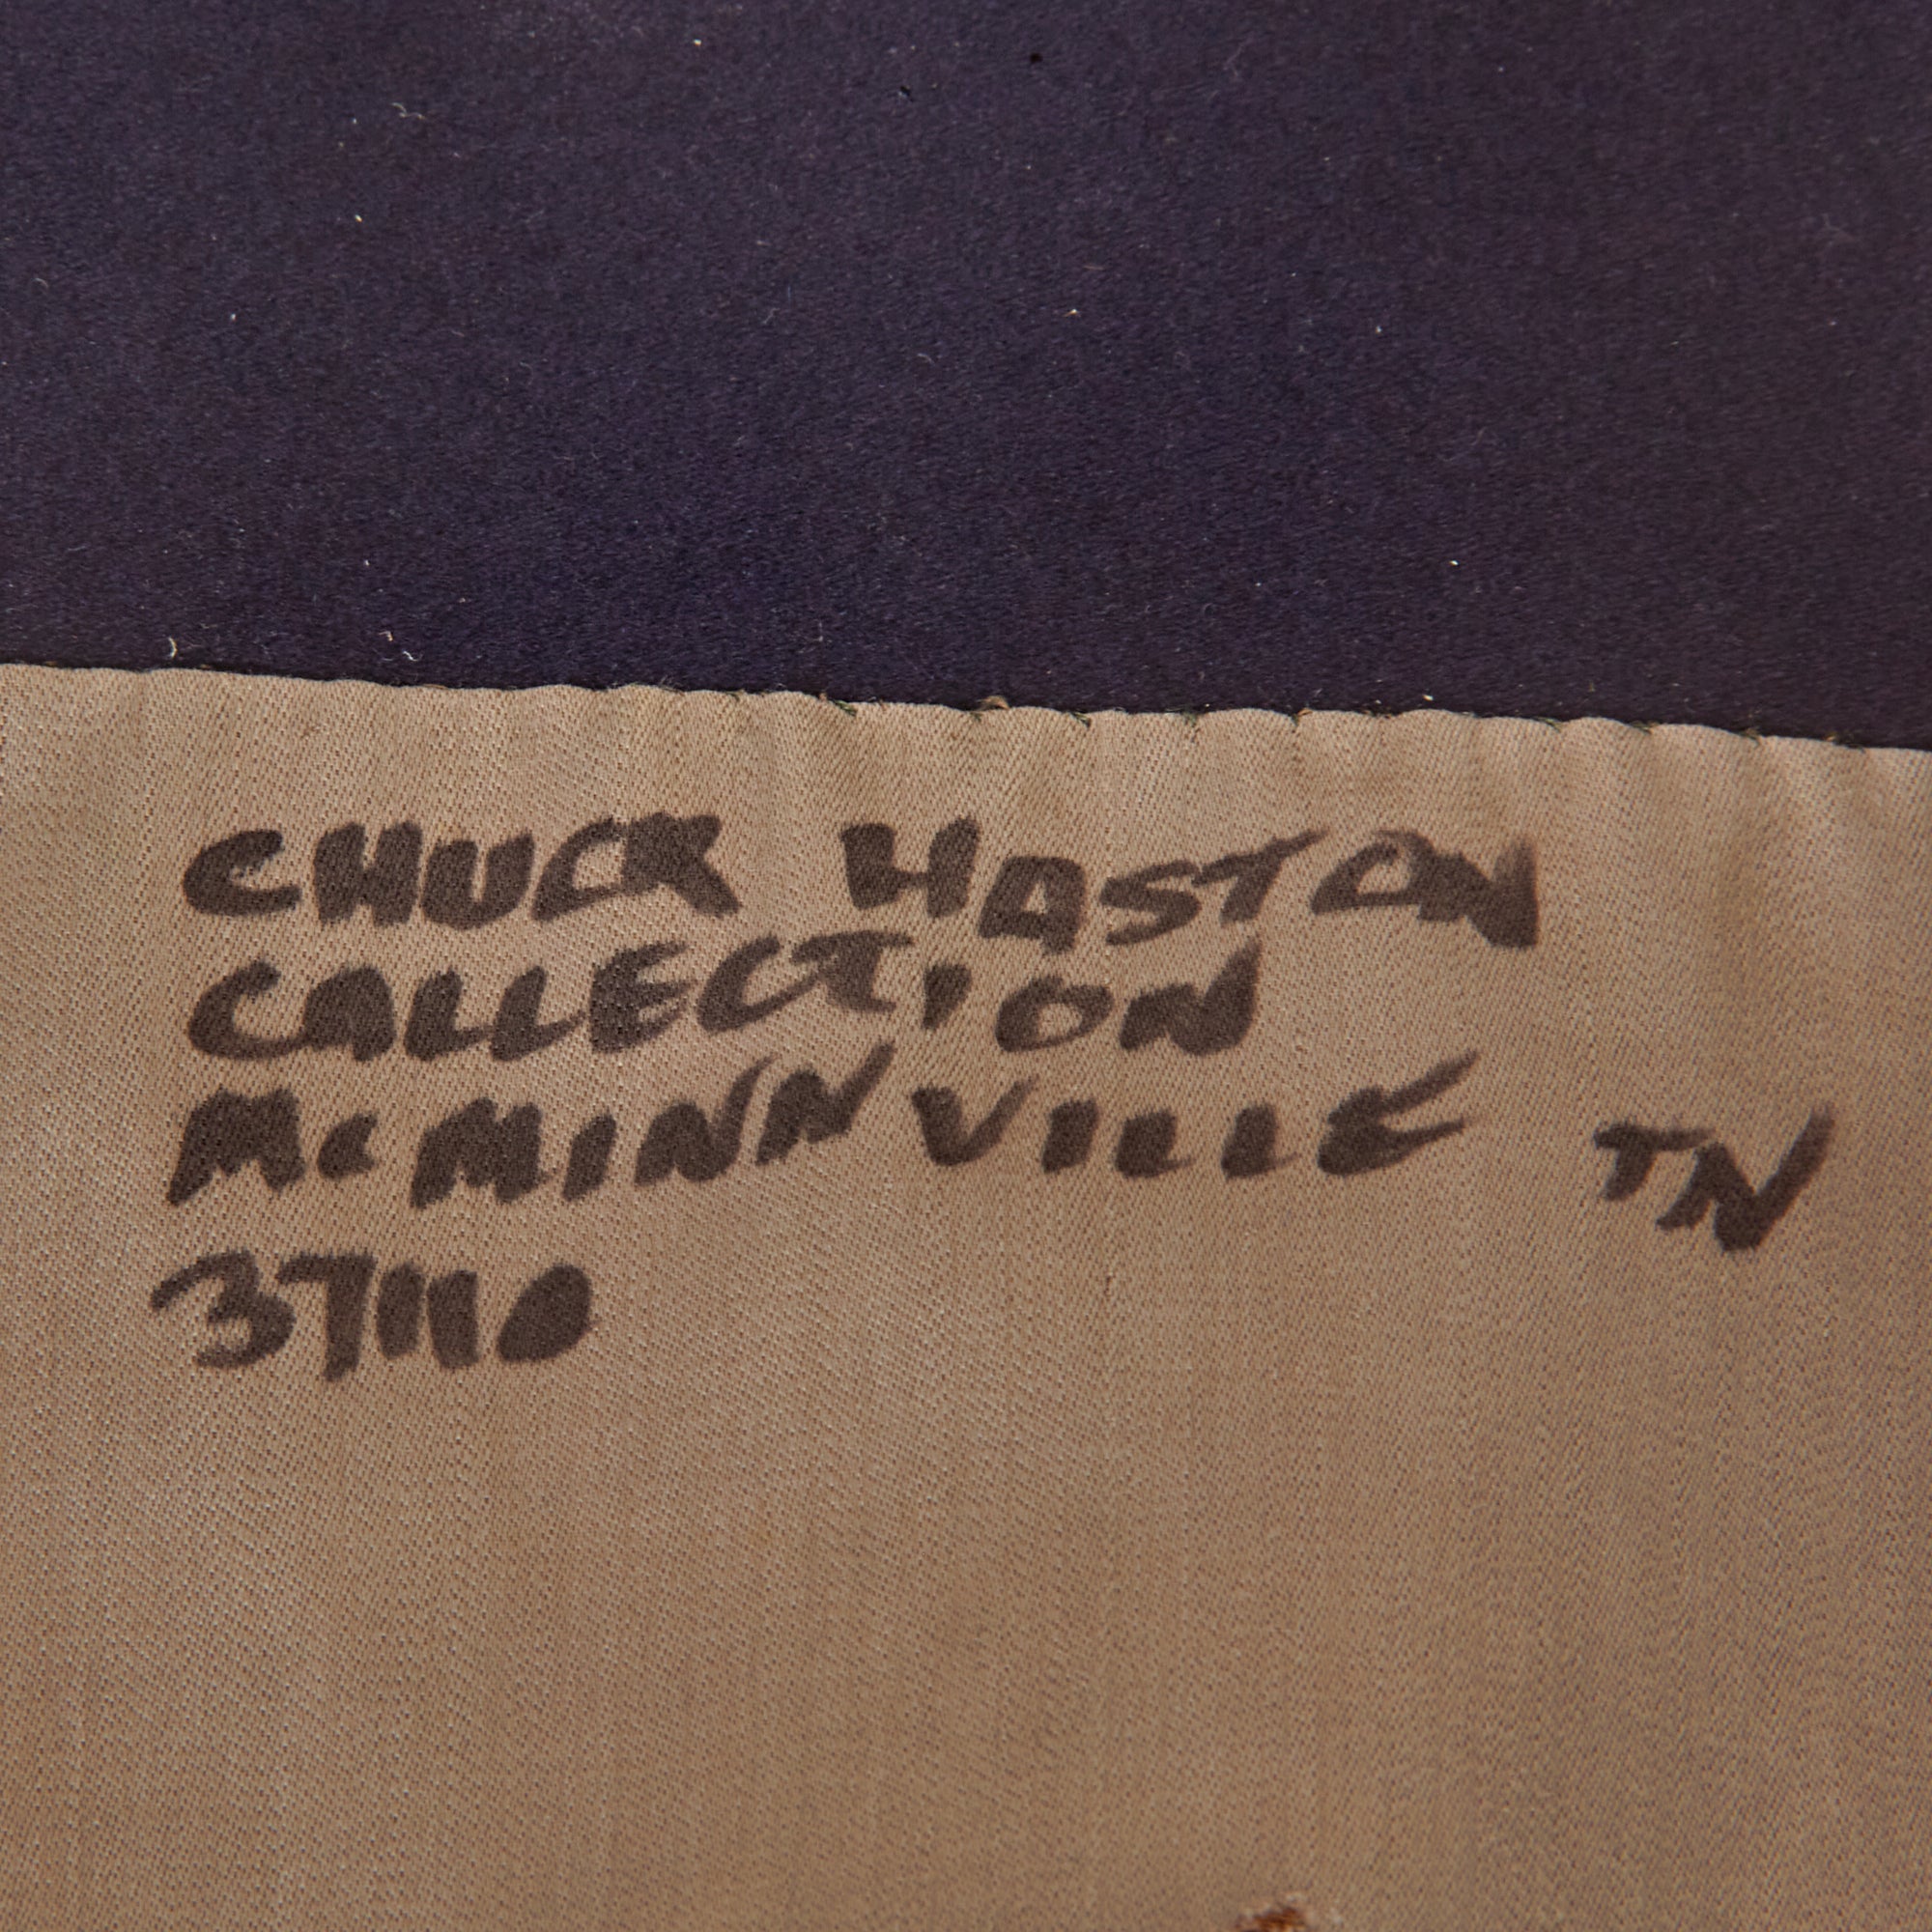 CHUCK HASTON
COLLECTION
McMINNVILLE TN
37110